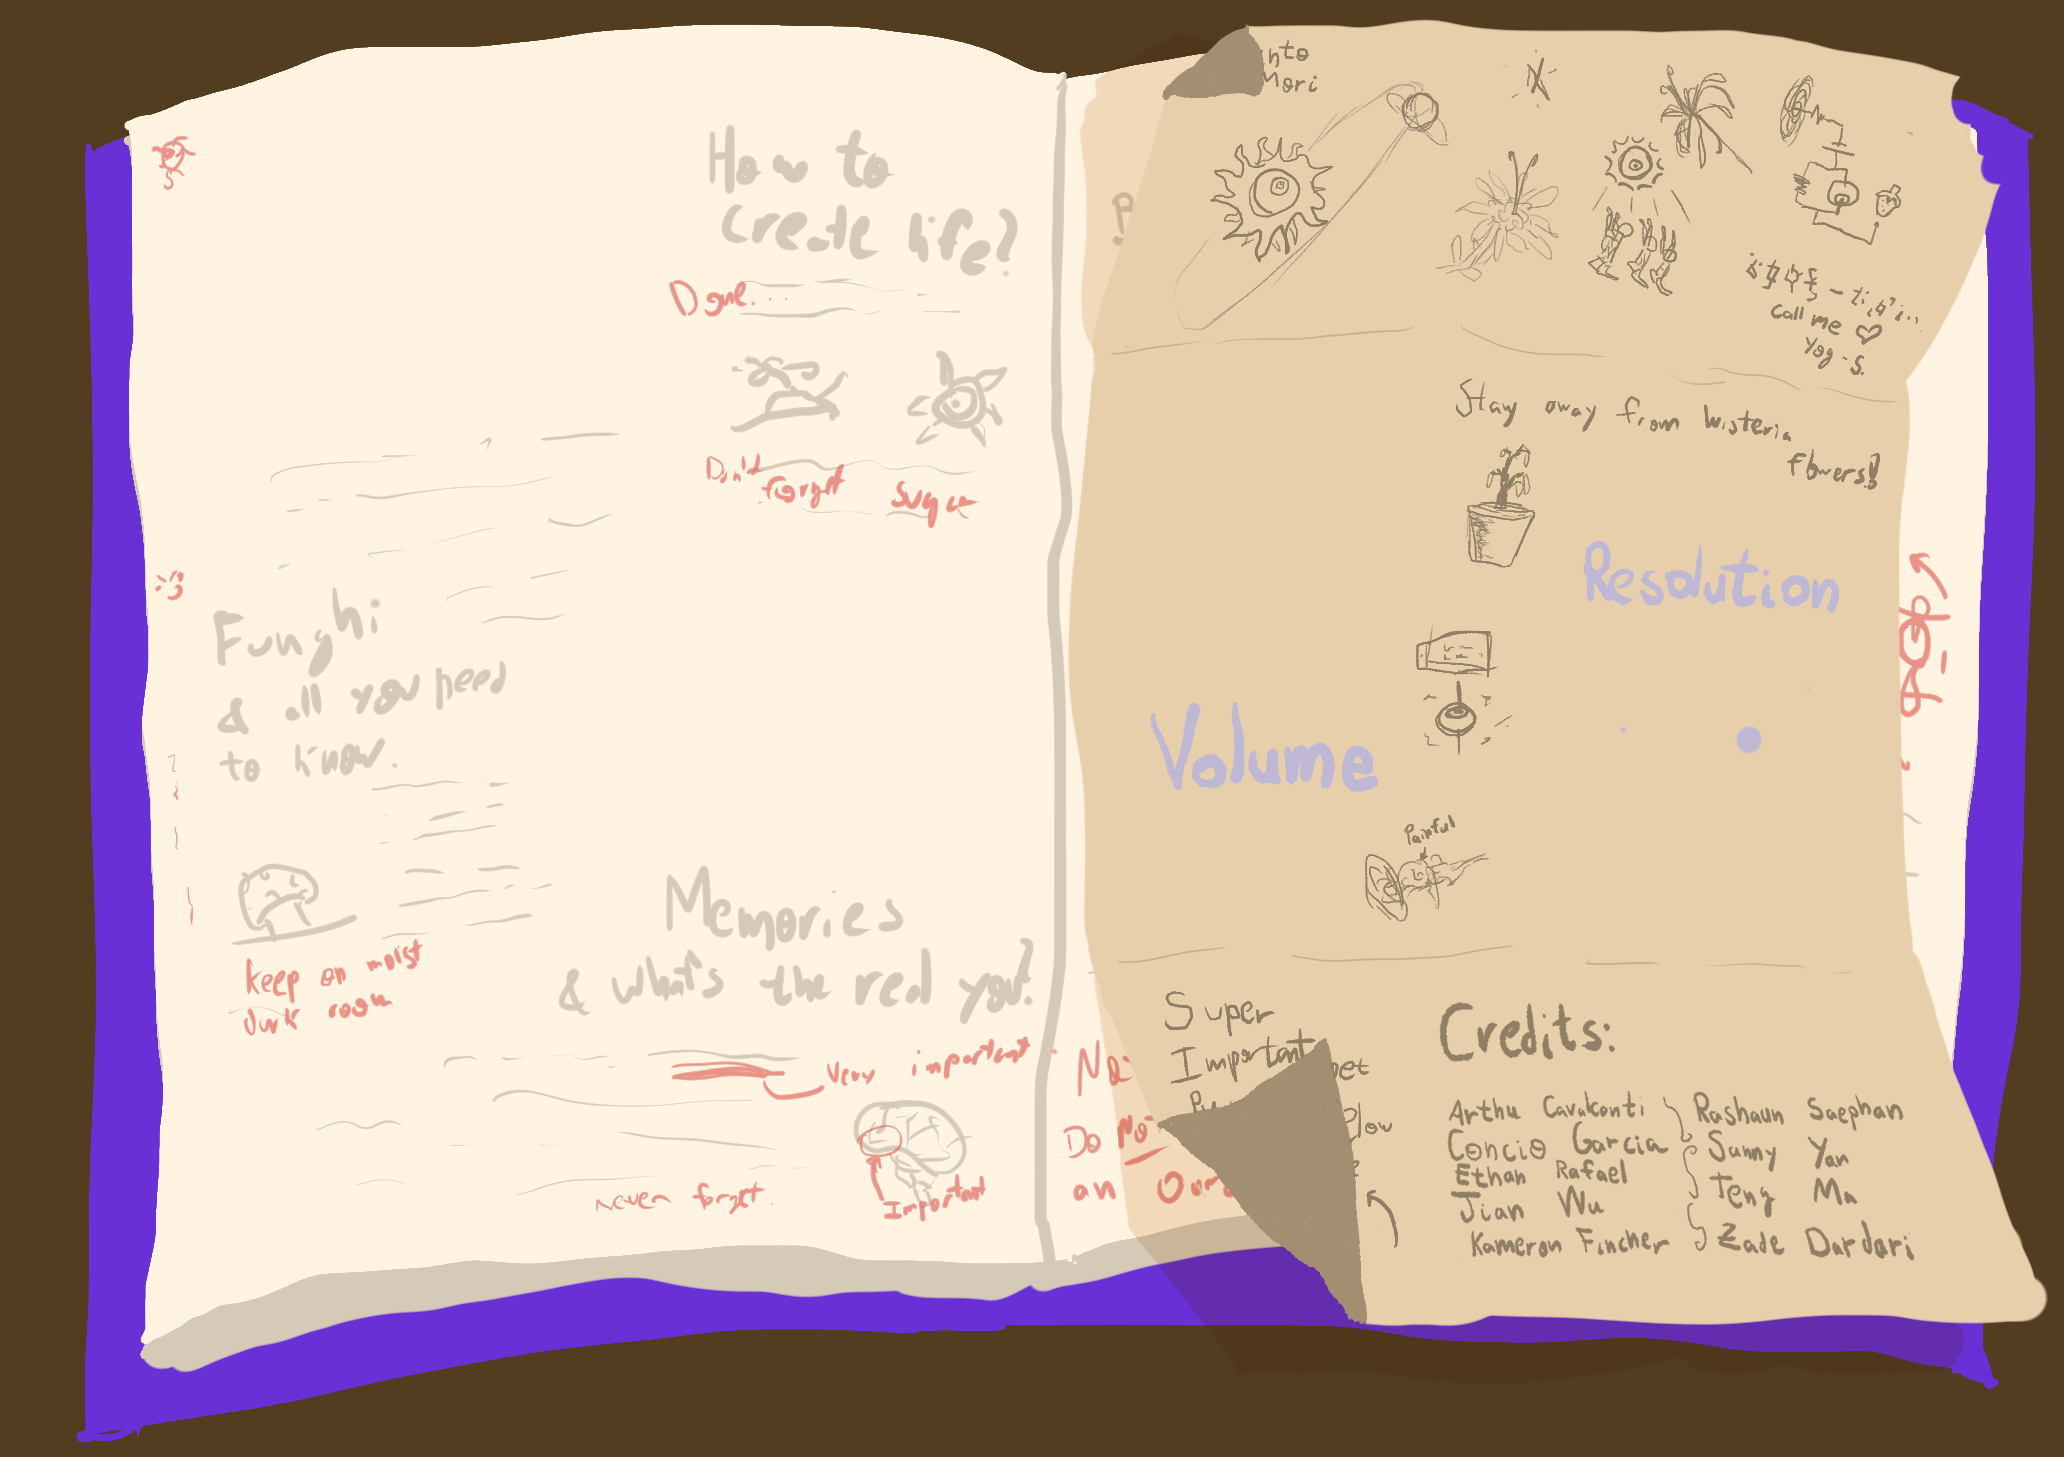 How to
Create life?
Done...
Don't
forget
Sugar
Funghi
& all you need
to know.
keep on moist
dark room
Memories
& what's the red you?
Very important
never forget
Important
nto
mori
Call me ♡
Yog-S.
Stay away from wisteria
flowers!
Resolution
Volume
Painful
Super
Important
Do No
an
Credits:
Arthu Cavalcanti
Concio Garcia
Ethan Rafael
Jian Wu
Kameron Fincher
Rashaun Saephan
Sunny Yan
Teng Ma
Zade Dardari